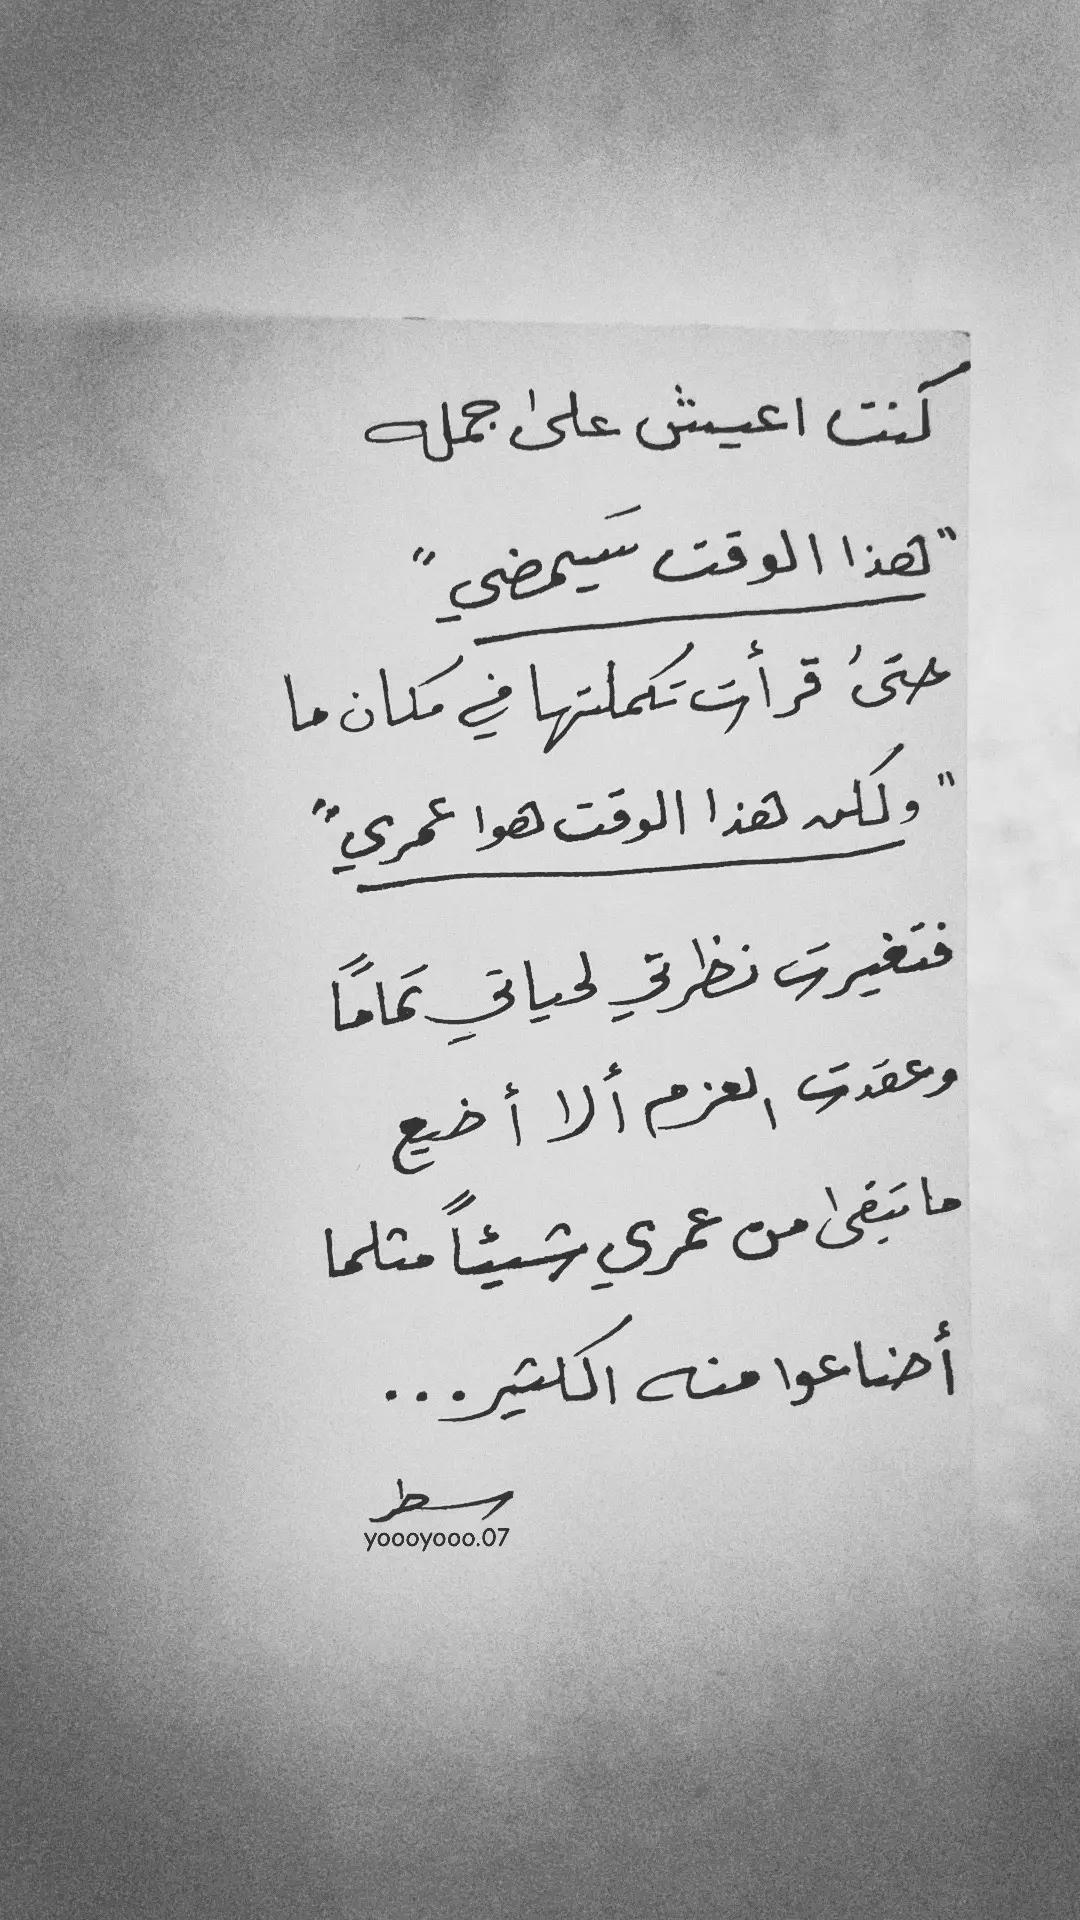 كنت اعيش على جمله
"هذا الوقت سَيمضي"
حتىٰ قرأت تكملتها في مكان ما
"ولكن هذا الوقت هوا عمري"
فتغيرت نظرتي لحياتي تمامًا
وعقدت العزم ألا أضيع
ما تبقىٰ من عمري شيئاً مثلما
أضاعوا منه الكثير...
سطر
yoooyooo.07